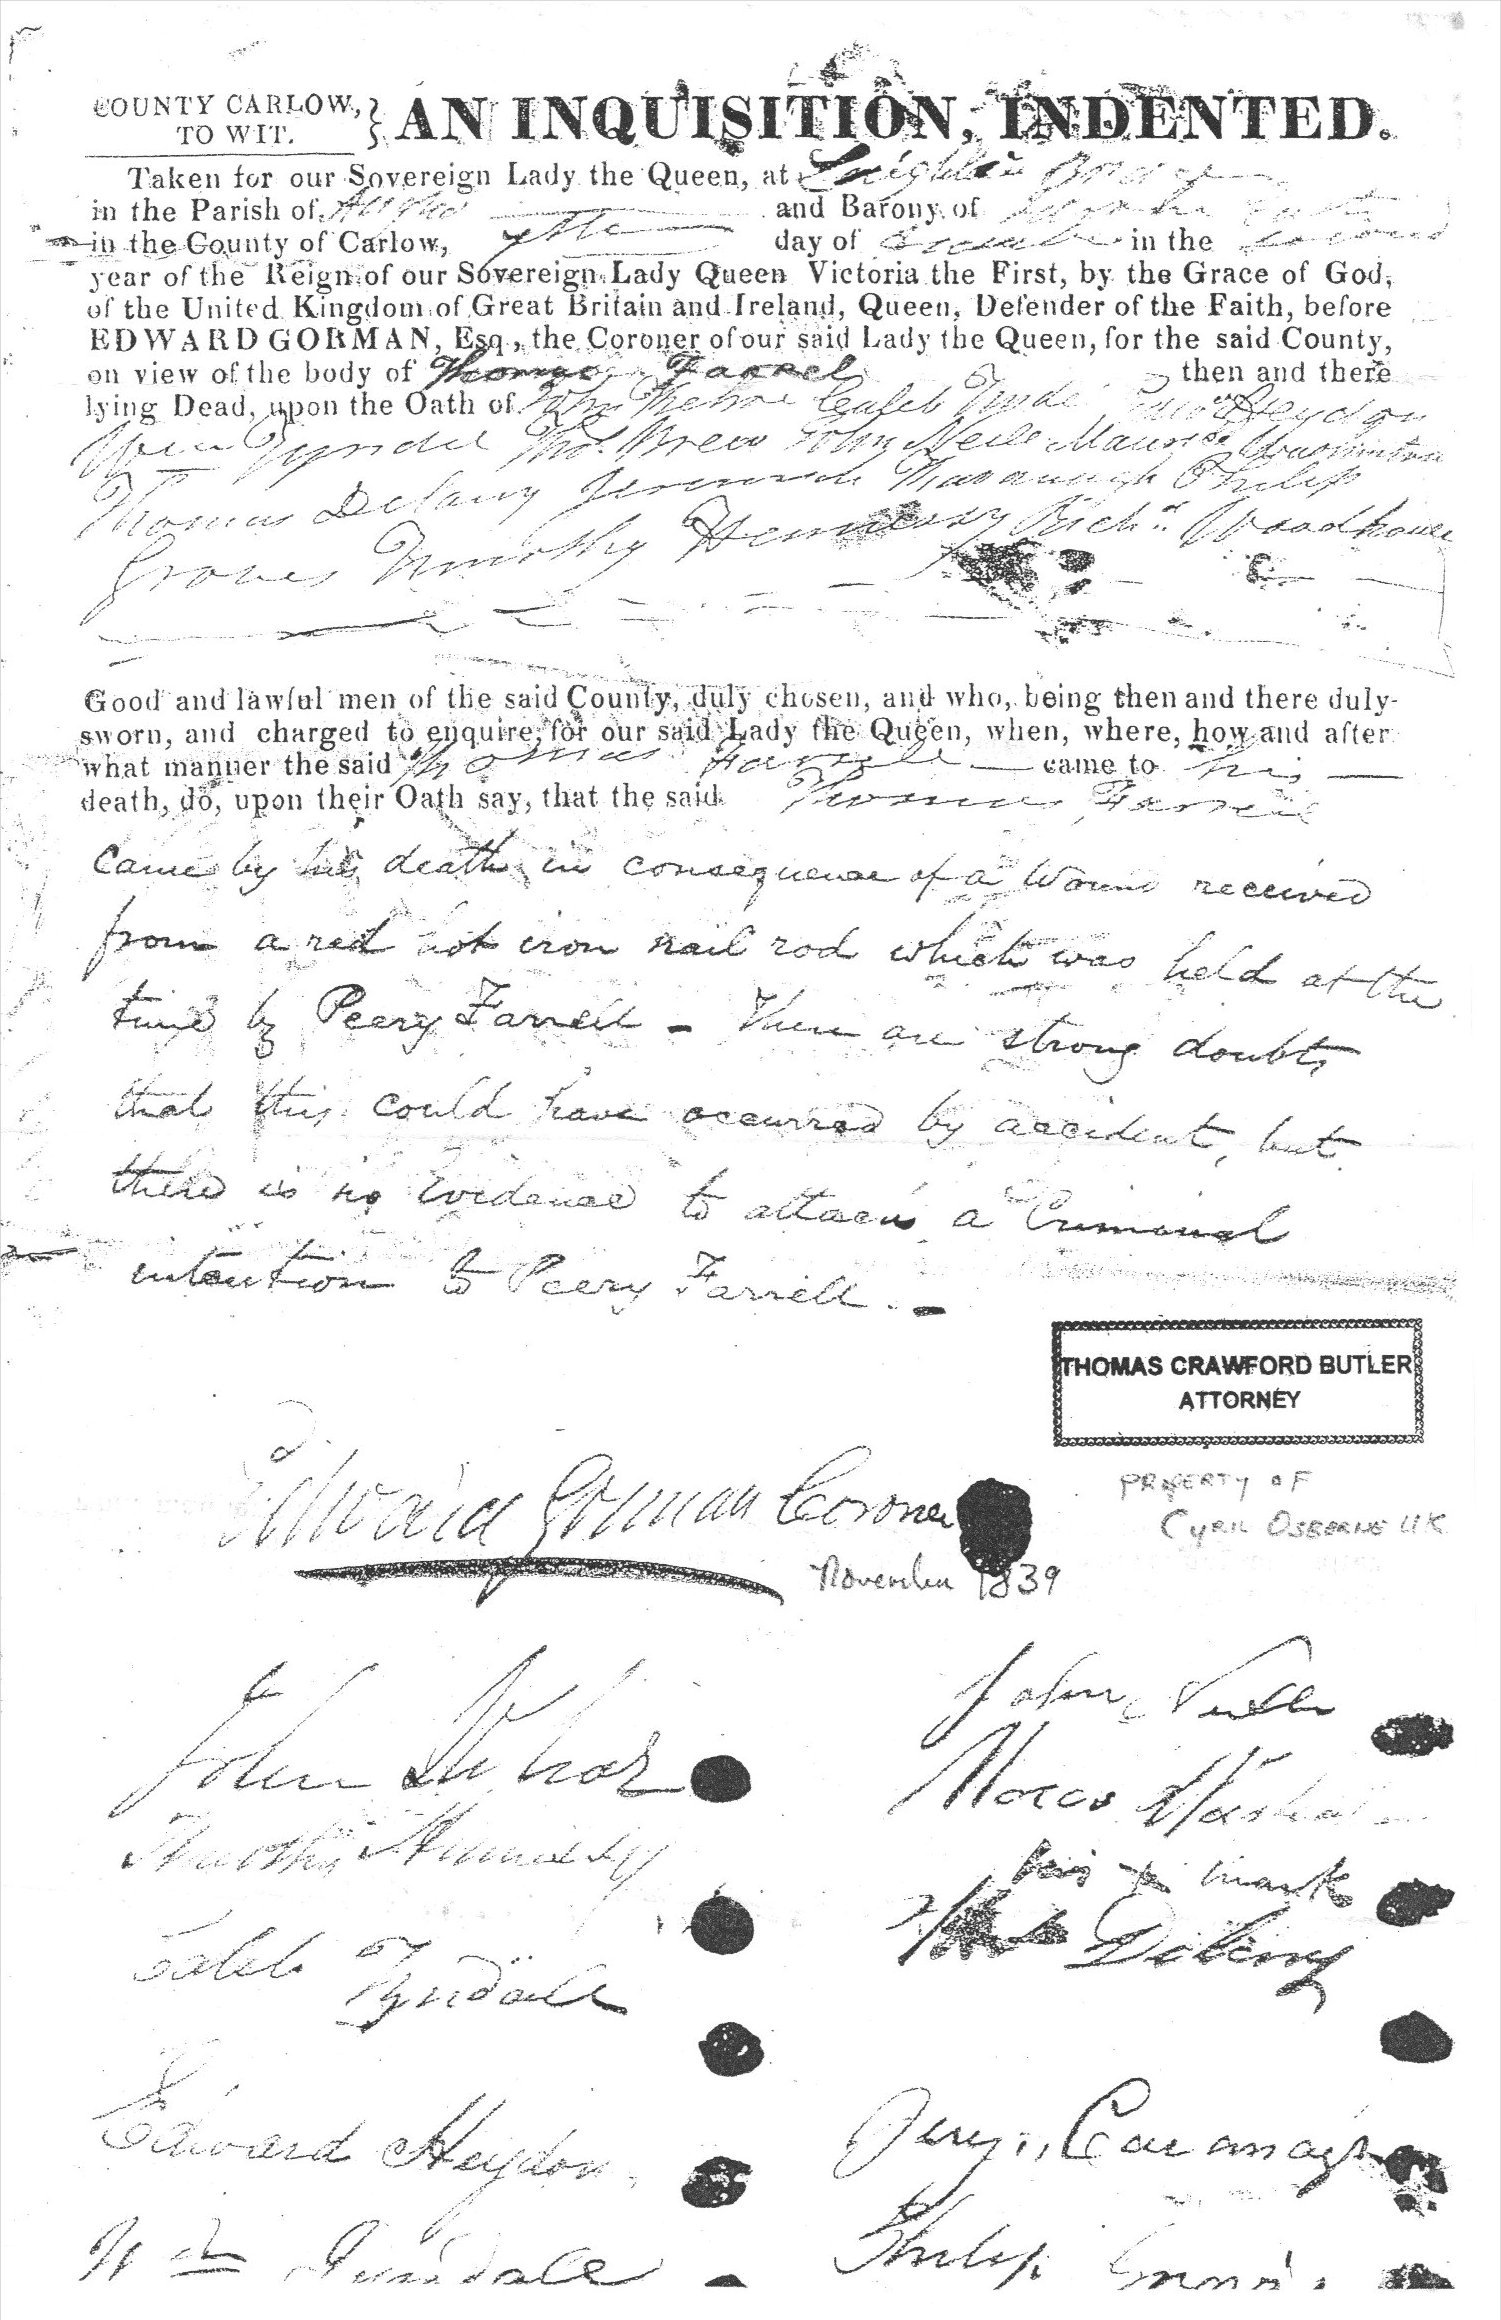 COUNTY CARLOW, TO WIT. } AN INQUISITION, INDENTED.
Taken for our Sovereign Lady the Queen, at Leighlin Bridge
in the Parish of and Barony of
in the County of Carlow, day of in the Second
year of the Reign of our Sovereign Lady Queen Victoria the First, by the Grace of God,
of the United Kingdom of Great Britain and Ireland, Queen, Defender of the Faith, before
EDWARD GORMAN, Esq., the Coroner of our said Lady the Queen, for the said County,
on view of the body of Thomas Farrel then and there
lying Dead, upon the Oath of John Caleb Heydon
Wm Tyndel Thos. Brew John Neile Maurice
Thomas Delany Kavanagh Philip
Groves Timothy Hennessy Richd. Woodhouse
Good and lawful men of the said County, duly chosen, and who, being then and there duly
sworn, and charged to enquire, for our said Lady the Queen, when, where, how and after
what manner the said Thomas Farrell came to his
death, do, upon their Oath say, that the said Thomas Farrell
Came by his death in consequence of a Wound received
from a red hot iron nail rod which was held at the
time by Peery Farrell - There are strong doubts
that this could have occurred by accident, but
there is no Evidence to attach a Criminal
intention to Peery Farrell. -
THOMAS CRAWFORD BUTLER
ATTORNEY
PROPERTY OF
CYRIL OSBORNE UK
Edward Gorman Coroner
November 1839
John
John
Timothy Hennessy
his x mark
Caleb Tyndall
Delany
Edward Heydon
Jery. Cavanagh
Wm Tyndale
Philip